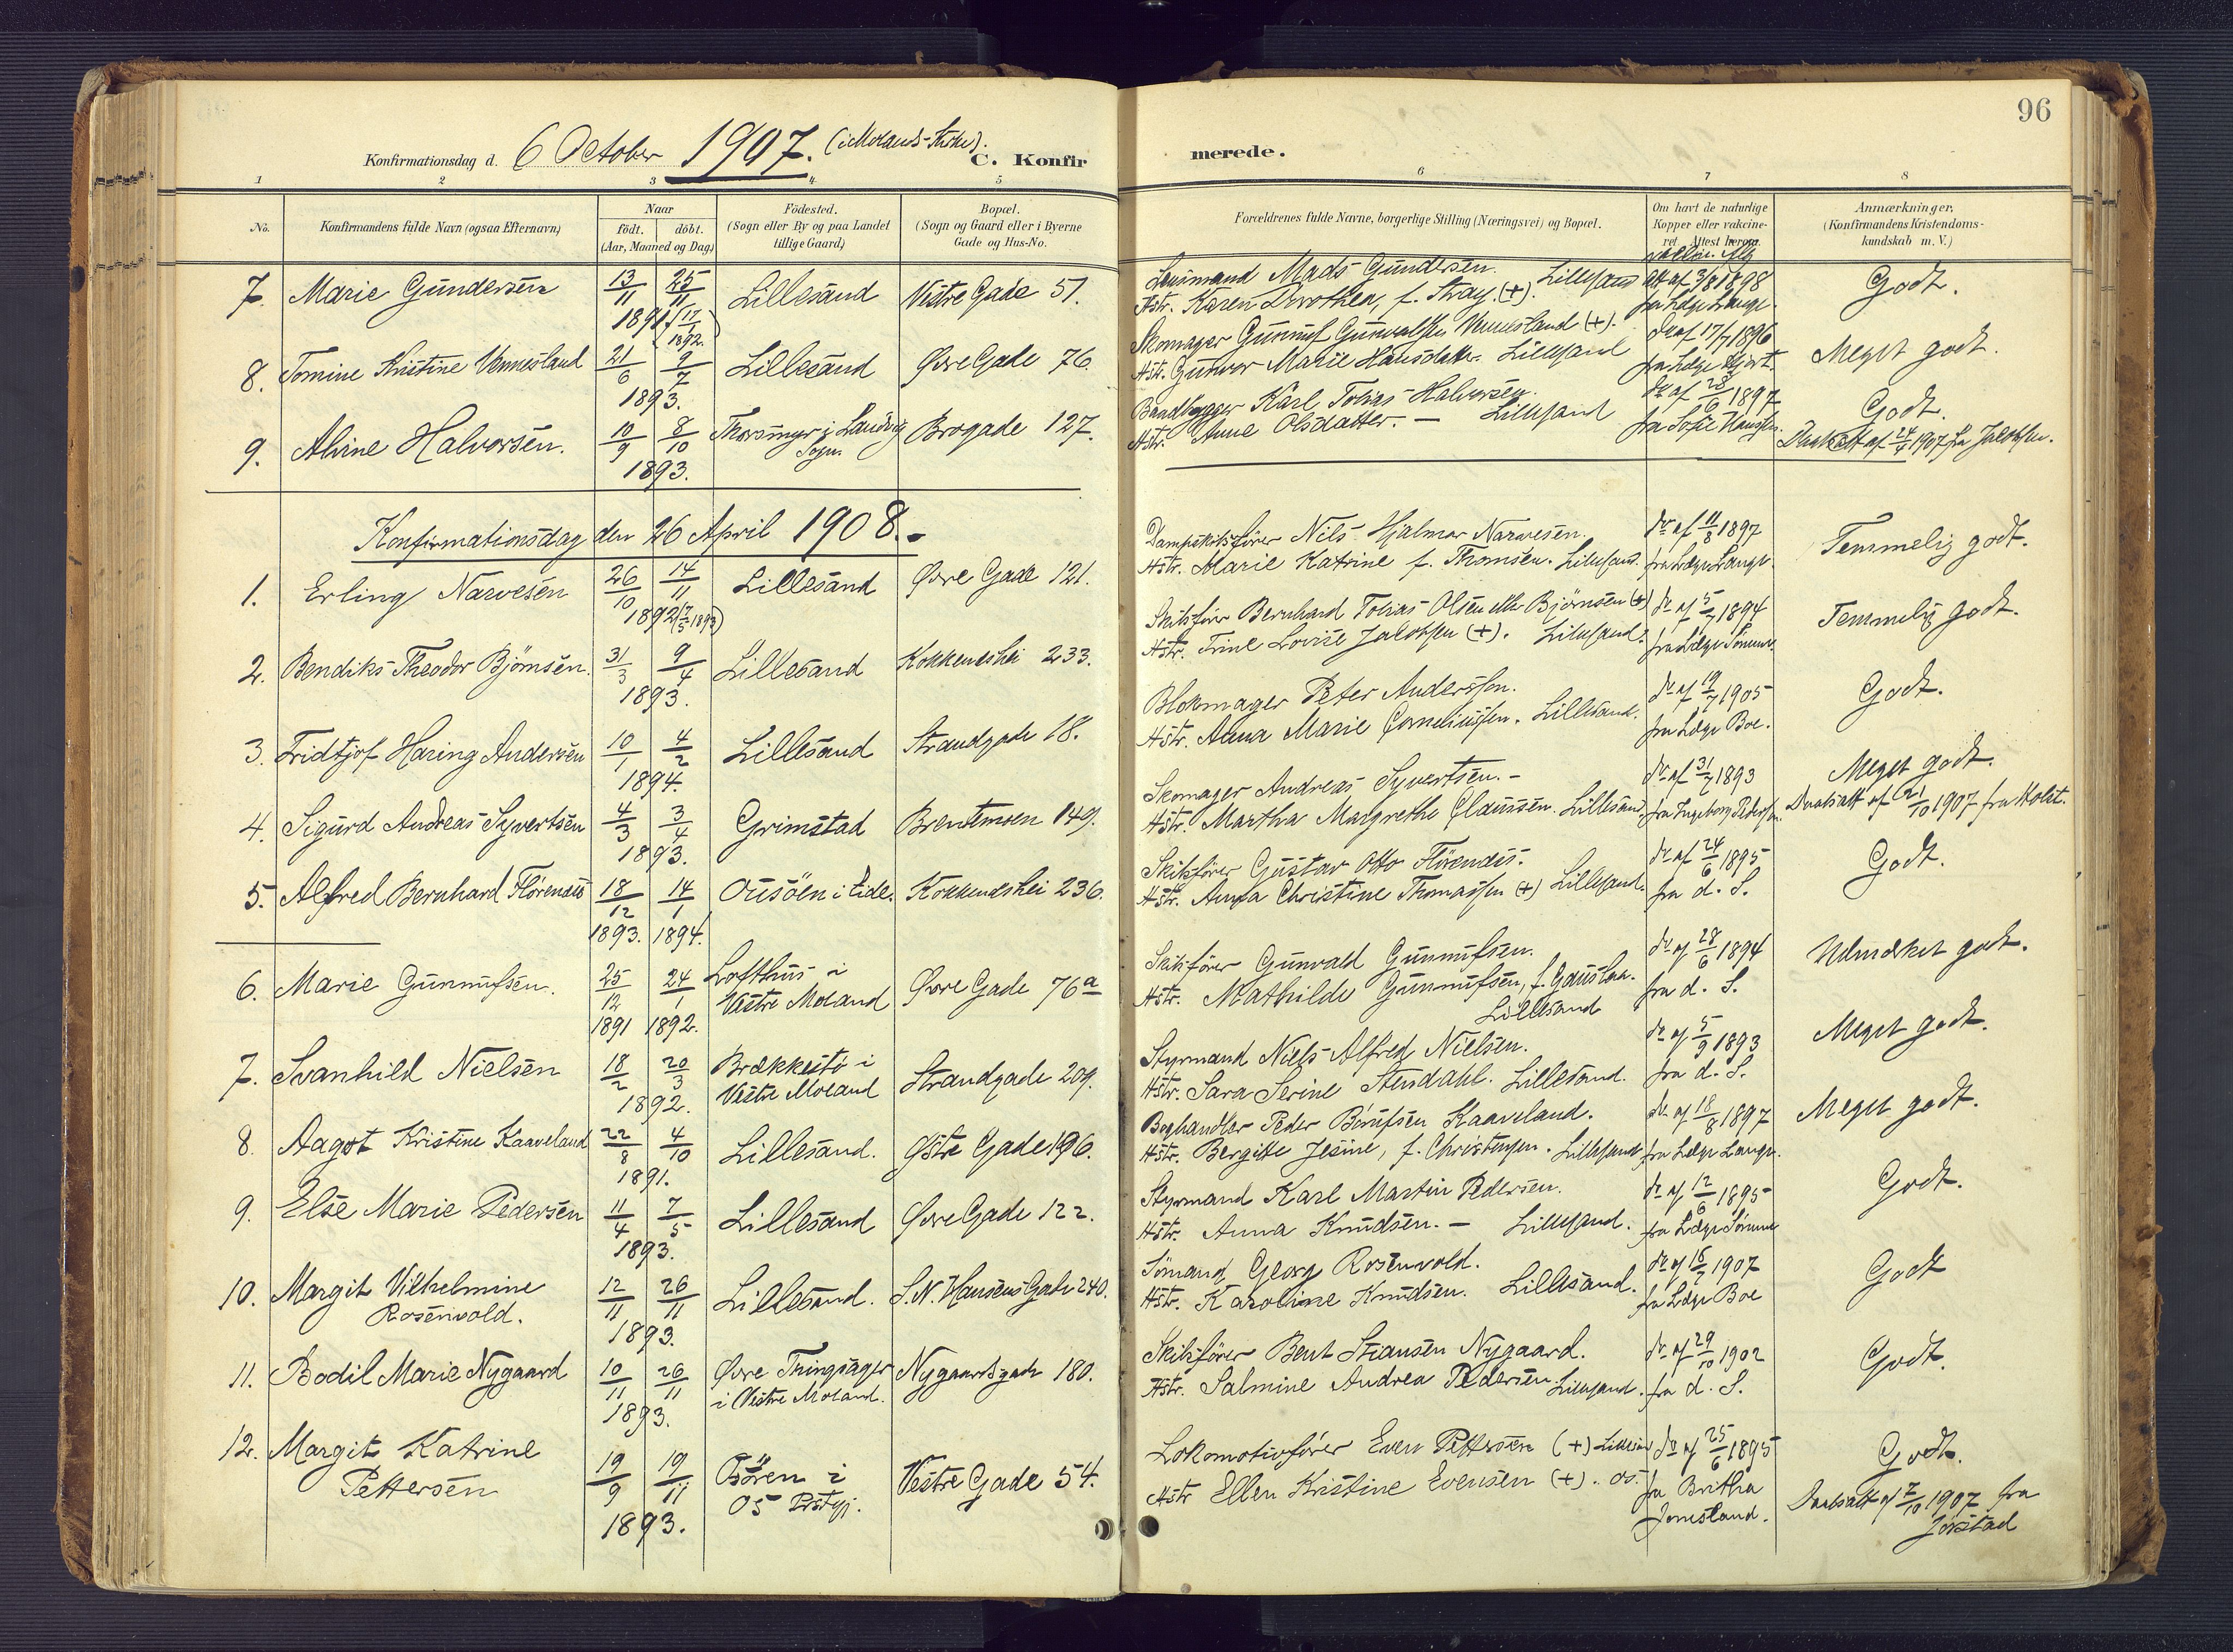 96
Konfirmationsdag d. 6 October 1907. (i Molands Kirke).
C. Konfirmerede.
1 2 3 4 5 6 7 8
No.
Konfirmandens fulde Navn (ogsaa Efternavn)
Naar
födt. döbt.
(Aar, Maaned og Dag)
Födested.
(Sogn eller By og paa Landet
tillige Gaard)
Bopæl.
(Sogn og Gaard eller i Byerne
Gade og Hus-No.
Forældrenes fulde Navne, borgerlige Stilling (Næringsvei) og Bopæl.
Om havt de naturlige
Kopper eller vakcine-
ret. Attest herom.
Anmærkninger,
(Konfirmandens Kristendoms-
kundskab m. V.)
7. Marie Gundersen 13/11 25/11 1891 (17/1 1892) Lillesand Vestre Gade 51.
Mads Gundersen.
Hstr. Karen Dorothea, f. Stray (+). Lillesand
Att af 3/8 1898
fra Læge Lange.
Godt.
8. Tomine Kristine Vennesland 21/6 9/7 1893. Lillesand Øvre Gade 76.
Skomager Gunnuf Gunvaldsen Vennesland (+).
Hstr. Gunvor Marie Hansdatter. Lillesand
do af 17/7 1896
fra Læge Hjort.
Meget godt.
9. Alvine Halvorsen. 10/9 8/10 1893. Thorsmyr i Landvig Sogn Brogade 127.
Baadbygger Karl Tobias Halvorsen.
Hstr. Anne Olsdatter. – Lillesand
do af 28/6 1897
fra Sofie Hansen.
Godt.
Daabsatt af 24/9 1907 fra Jakobsen.
Konfirmationsdag den 26 April 1908.
1. Erling Narvesen 26/10 14/11 1892 (7/5 1893) Lillesand Øvre Gade 121.
Dampskibsfører Nils Hjalmar Narvesen.
Hstr. Marie Katrine f. Thomsen. Lillesand.
do af 11/8 1897
fra Læge Lange.
Temmelig godt.
2. Bendiks Theodor Bjömsen. 31/3 9/4 1893. Lillesand Kokkeneshei 233.
Skibsfører Bernhard Tobias Olsen eller Bjömsen (+)
Hstr. Trine Lovise Jakobsen (+). Lillesand.
do af 5/7 1894
fra Læge
Temmelig godt.
3. Fridtjof Haring Andersen 10/1 4/2 1894. Lillesand Strandgade 18.
Blokmager Peter Anderssen.
Hstr. Anna Marie Corneliussen. Lillesand.
do af 19/7 1905
fra Læge Boe.
Godt.
4. Sigurd Andreas Syvertsen 4/3 3/4 1893. Grimstad Brentemoen 149.
Skomager Andreas Syvertsen. –
Hstr. Martha Margrethe Claussen. Lillesand
do af 31/7 1893
fra Ingeborg Pedersen.
Meget godt.
Daabsatt af 21/10 1907 fra
5. Alfred Bernhard Flörendes 18/12 1893. 14/1 1894. Ousöen i Eide. Kokkeneshei 236.
Skibsfører Gustav Otto Flörendes.
Hstr. Anna Christine Thomassen (+) Lillesand.
do af 24/6 1895
fra d. S.
Godt.
6. Marie Gunnufsen. 25/12 1891 24/1 1892. Lofthus i Vestre Moland Øvre Gade 76a
Skibsfører Gunvald Gunnufsen.
Hstr. Mathilde Gunnufsen, f. Gauslaa.
Lillesand
do af 28/6 1894
fra d. S.
Udmærket godt.
7. Svanhild Nielsen 18/2 20/3 1892. Brækkestö i Vestre Moland Strandgade 209.
Styrmand Niels Alfred Nielsen.
Hstr. Sara Serine Stendahl. Lillesand.
do af 5/9 1893
fra d. S.
Meget godt.
8. Aagot Kristine Kaaveland 22/8 4/10 1891. Lillesand. Østre Gade 196.
Boghandler Peder Berntsen Kaaveland.
Hstr. Bergitte Jesine, f. Christensen. Lillesand
do af 18/8 1897
fra Læge Lange.
Meget godt.
9. Else Marie Pedersen 11/4 7/5 1893. Lillesand Øvre Gade 122.
Styrmand Karl Martin Pedersen.
Hstr. Anna Knudsen. – Lillesand.
do af 12/6 1895
fra Læge
Godt.
10. Margit Vilhelmine
Rosenvold. 12/11 26/11 1893. Lillesand. S. N. Hansens Gade 240.
Sömand Georg Rosenvold.
Hstr. Karoline Knudsen. Lillesand.
do af 16/7 1907
fra Læge Boe
Godt
11. Bodil Marie Nygaard 10/11 26/11 1893. Øvre Tingsager i Vestre Moland. Nygaardsgade 180.
Skibsfører Bent Stiansen Nygaard.
Hstr. Salmine Andrea Pedersen. Lillesand.
do af 29/10 1902
fra d. S.
Godt.
12. Margit Katrine
Pettersen 19/9 19/11 1893. Bören i Os Prstgj. Vestre Gade 54.
Lokomotivfører Even Pettersen (+) Lillesand
Hstr Ellen Kristine Evensen (+). Os.
do af 25/6 1895
fra Britha
Jonesland.
Godt.
Daabsatt af 7/10 1907 fra
Jörstad